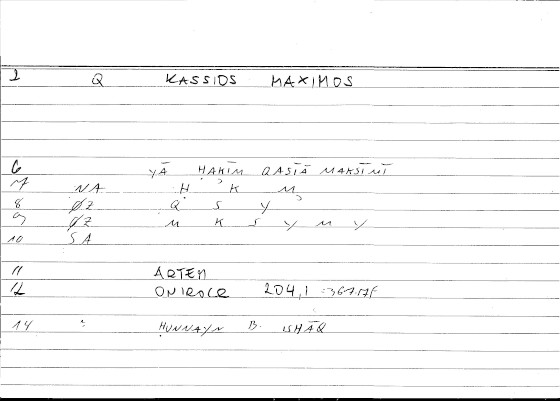 1 Q KASSIOS MAXIMOS
6 YĀ ḤAKĪM QASIĀ MAKSĪMĪ
7 NA Ḥ K M
8 ØZ Q S Y
9 ØZ M K S Y M Y
10 SA
11 ARTEM
12 ONIROCR 204,1
14 : ḤUNNAYN B. ISḤĀQ